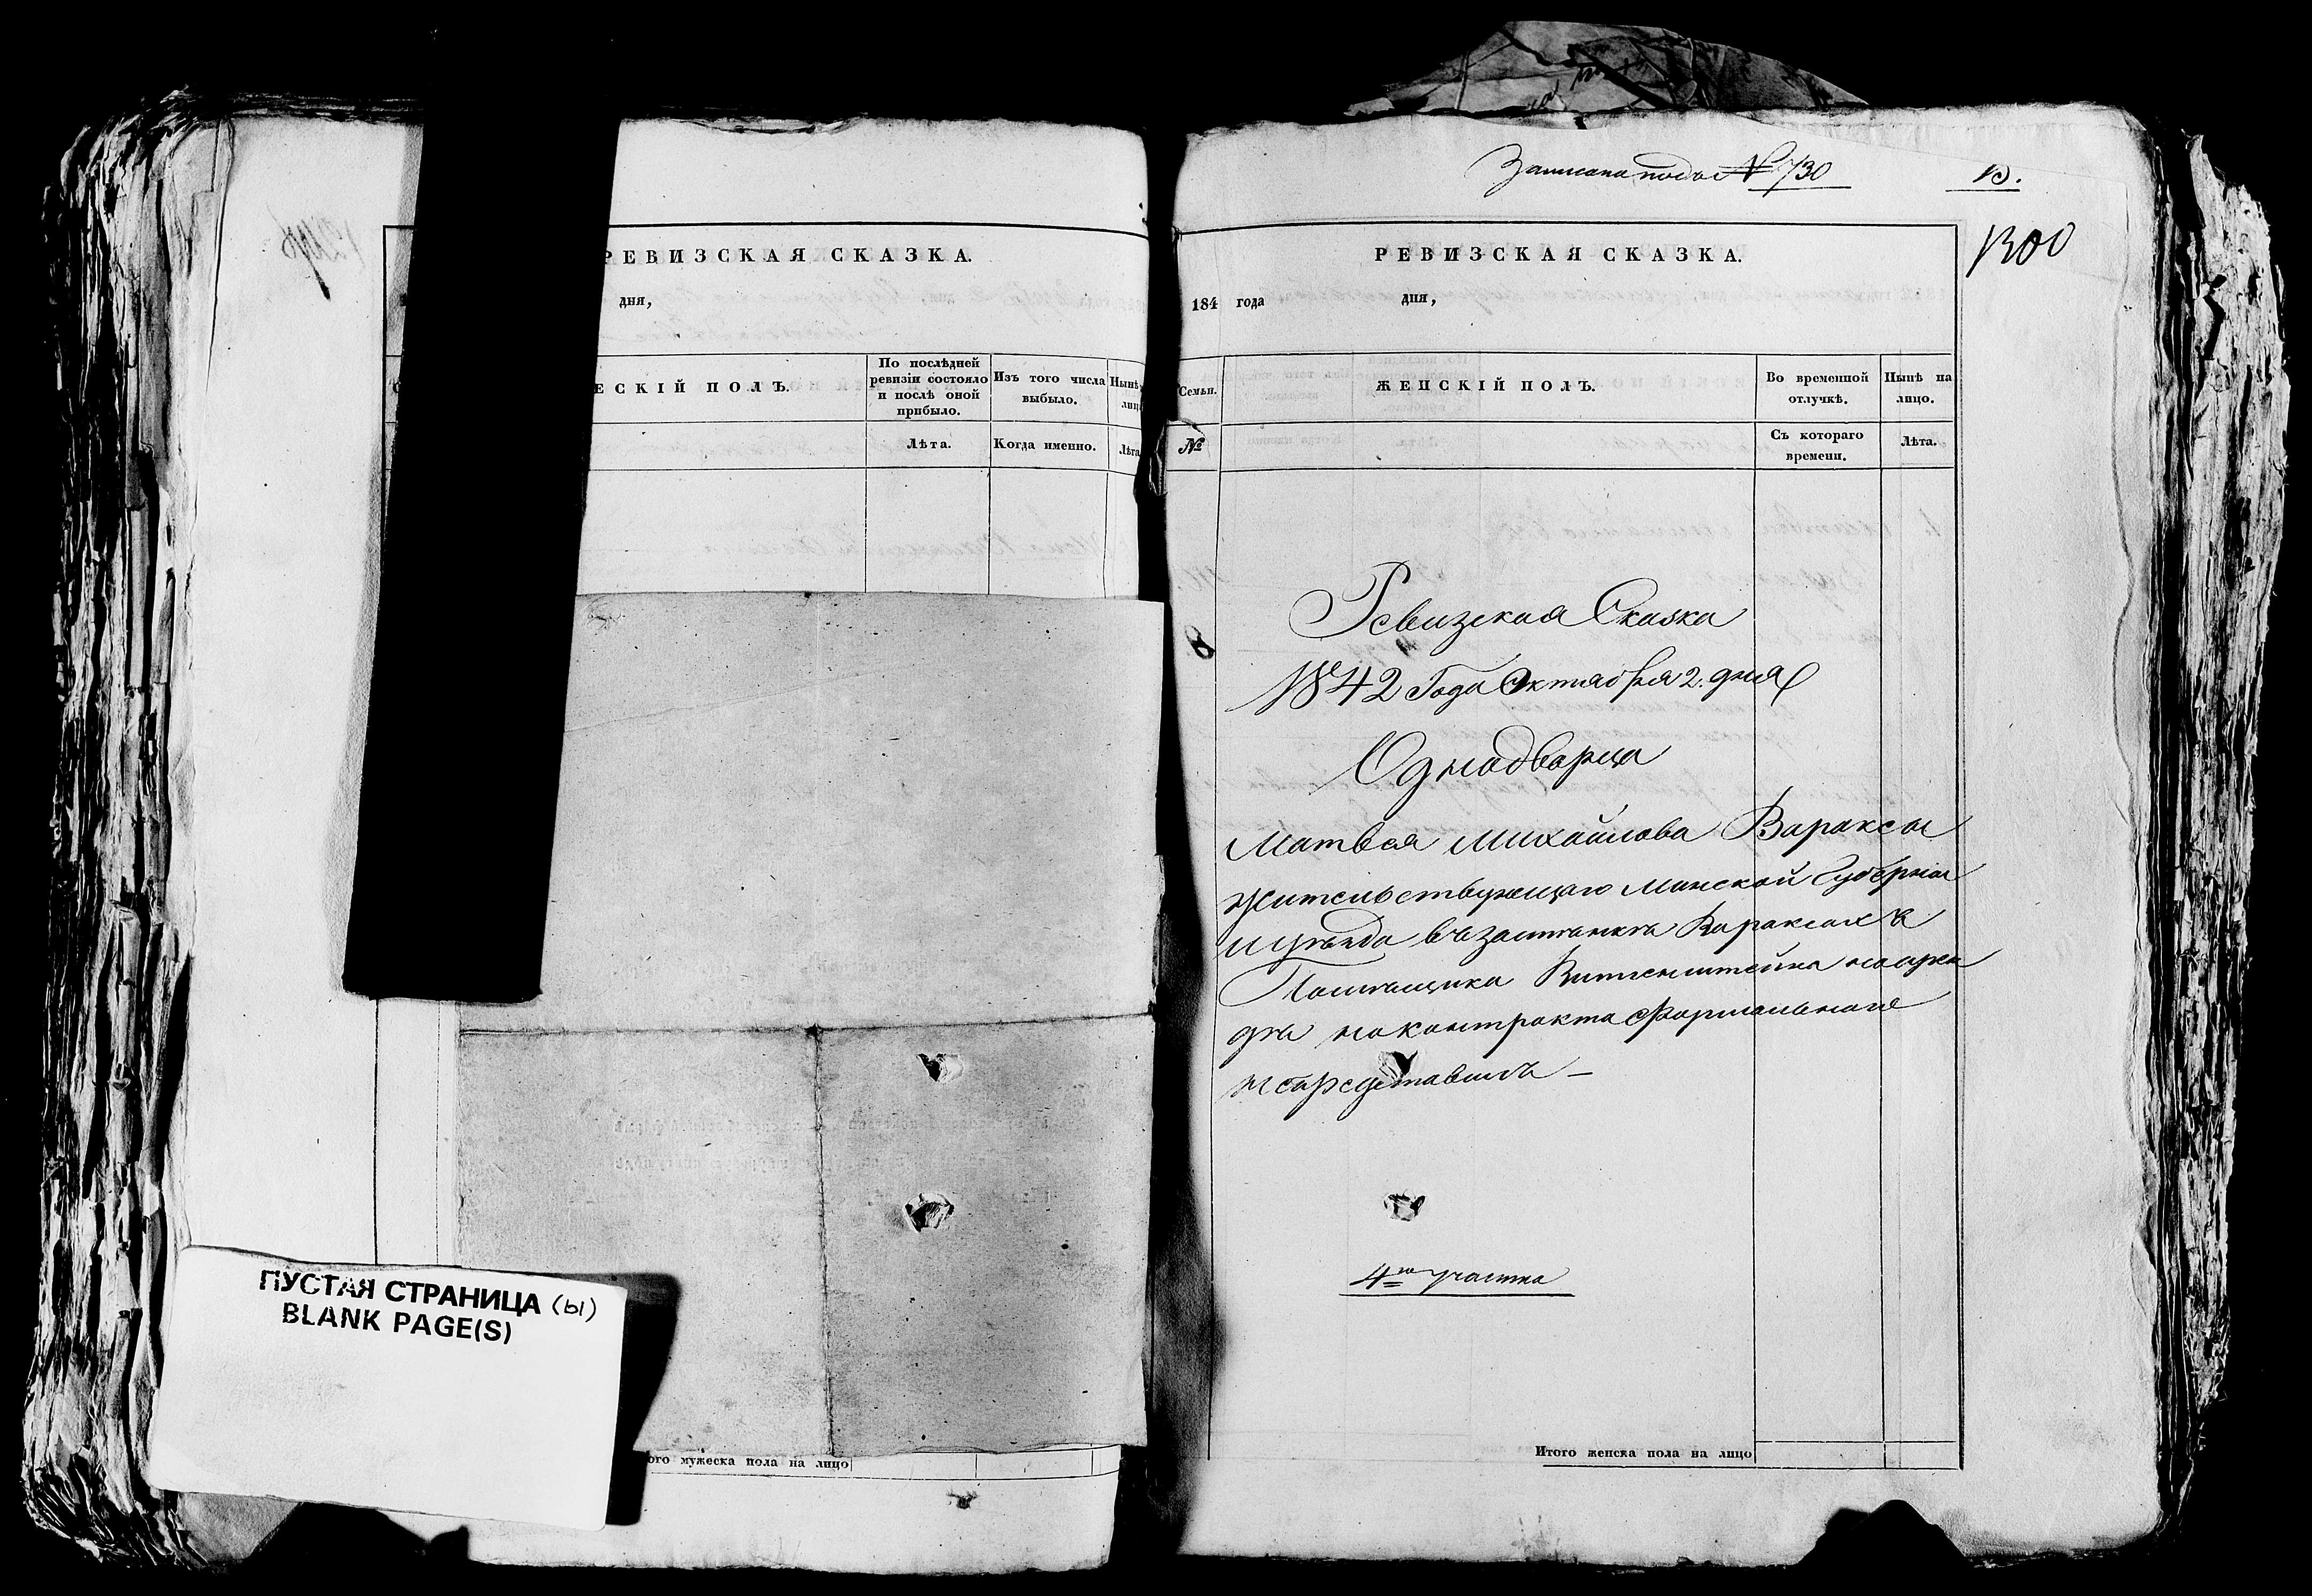 РЕВИЗСКАЯ СКАЗКА.
дня,
ЕСКІЙ ПОЛЪ.
По послѣдней ревизіи состояло и послѣ оной прибыло.
Изъ того числа выбыло.
Нынѣ
лиц
Лѣта.
Когда именно.
Лѣта
ого мужеска пола на лицо
ПУСТАЯ СТРАНИЦА (ы)
BLANK PAGE(S)
Записана подъ № 730
1300
РЕВИЗСКАЯ СКАЗКА.
184 года дня,
Семьи.
ЖЕНСКІЙ ПОЛЪ.
Во временной отлучкѣ.
Нынѣ на лицо.
№
Съ котораго времени.
Лѣта.
Ревизская Сказка
1842 Года Октября 2. дня
Однодворца
Матвея Михайлова Вараксы
жительствующаго Минской Губерніи
и уѣзда въ застѣнкѣ Вараксах у
Помѣщика Витгенштейна на арен
дѣ но контракта формальнаго
непредставилъ —
4го участка
Итого женска пола на лицо